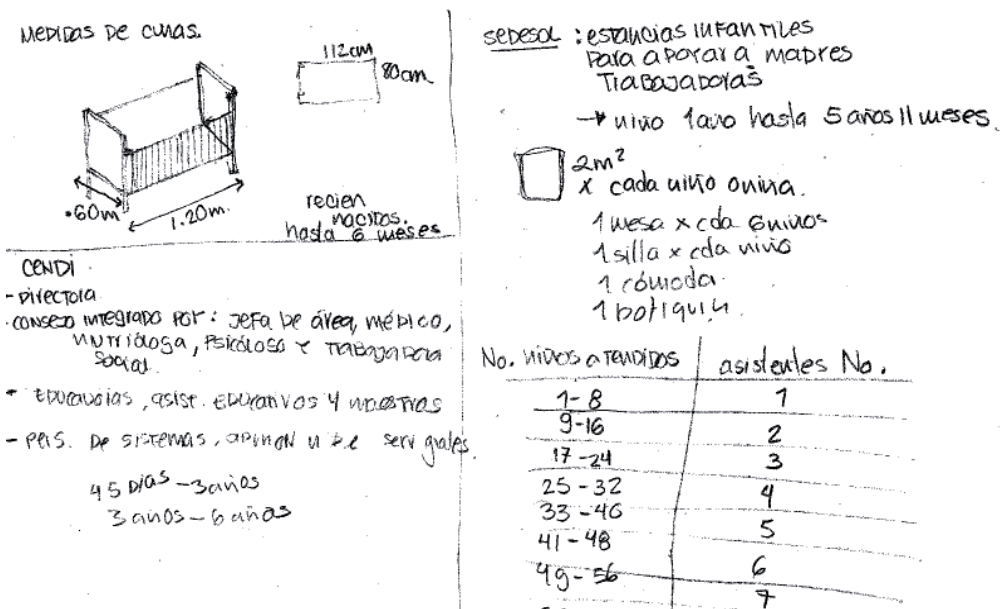 MEDIDAS DE CUNAS.
112cm
80cm
.60m
1.20m.
recien
nacidos.
hasta 6 meses
CENDI
- DIRECTORA
- CONSEJO INTEGRADO POR: JEFA DE ÁREA, MÉDICO,
NUTRIÓLOGA, PSICÓLOGO Y TRABAJADORA
SOCIAL
- EDUCADORAS, ASIST. EDUCATIVOS Y MAESTRAS
- PERS. DE SISTEMAS, ADMON
45 DÍAS - 3 años
3 años - 6 años
SEDESOL : ESTANCIAS INFANTILES
PARA APOYAR A MADRES
TRABAJADORAS
→ niño 1 año hasta 5 años 11 meses.
2m²
x cada niño o niña.
1 mesa x cda 6 niños
1 silla x cda niño
1 cómoda.
1 botiquín.
No. NIÑOS ATENDIDOS asistentes No.
1-8 1
9-16 2
17-24 3
25-32 4
33-40 5
41-48 6
49-56 7